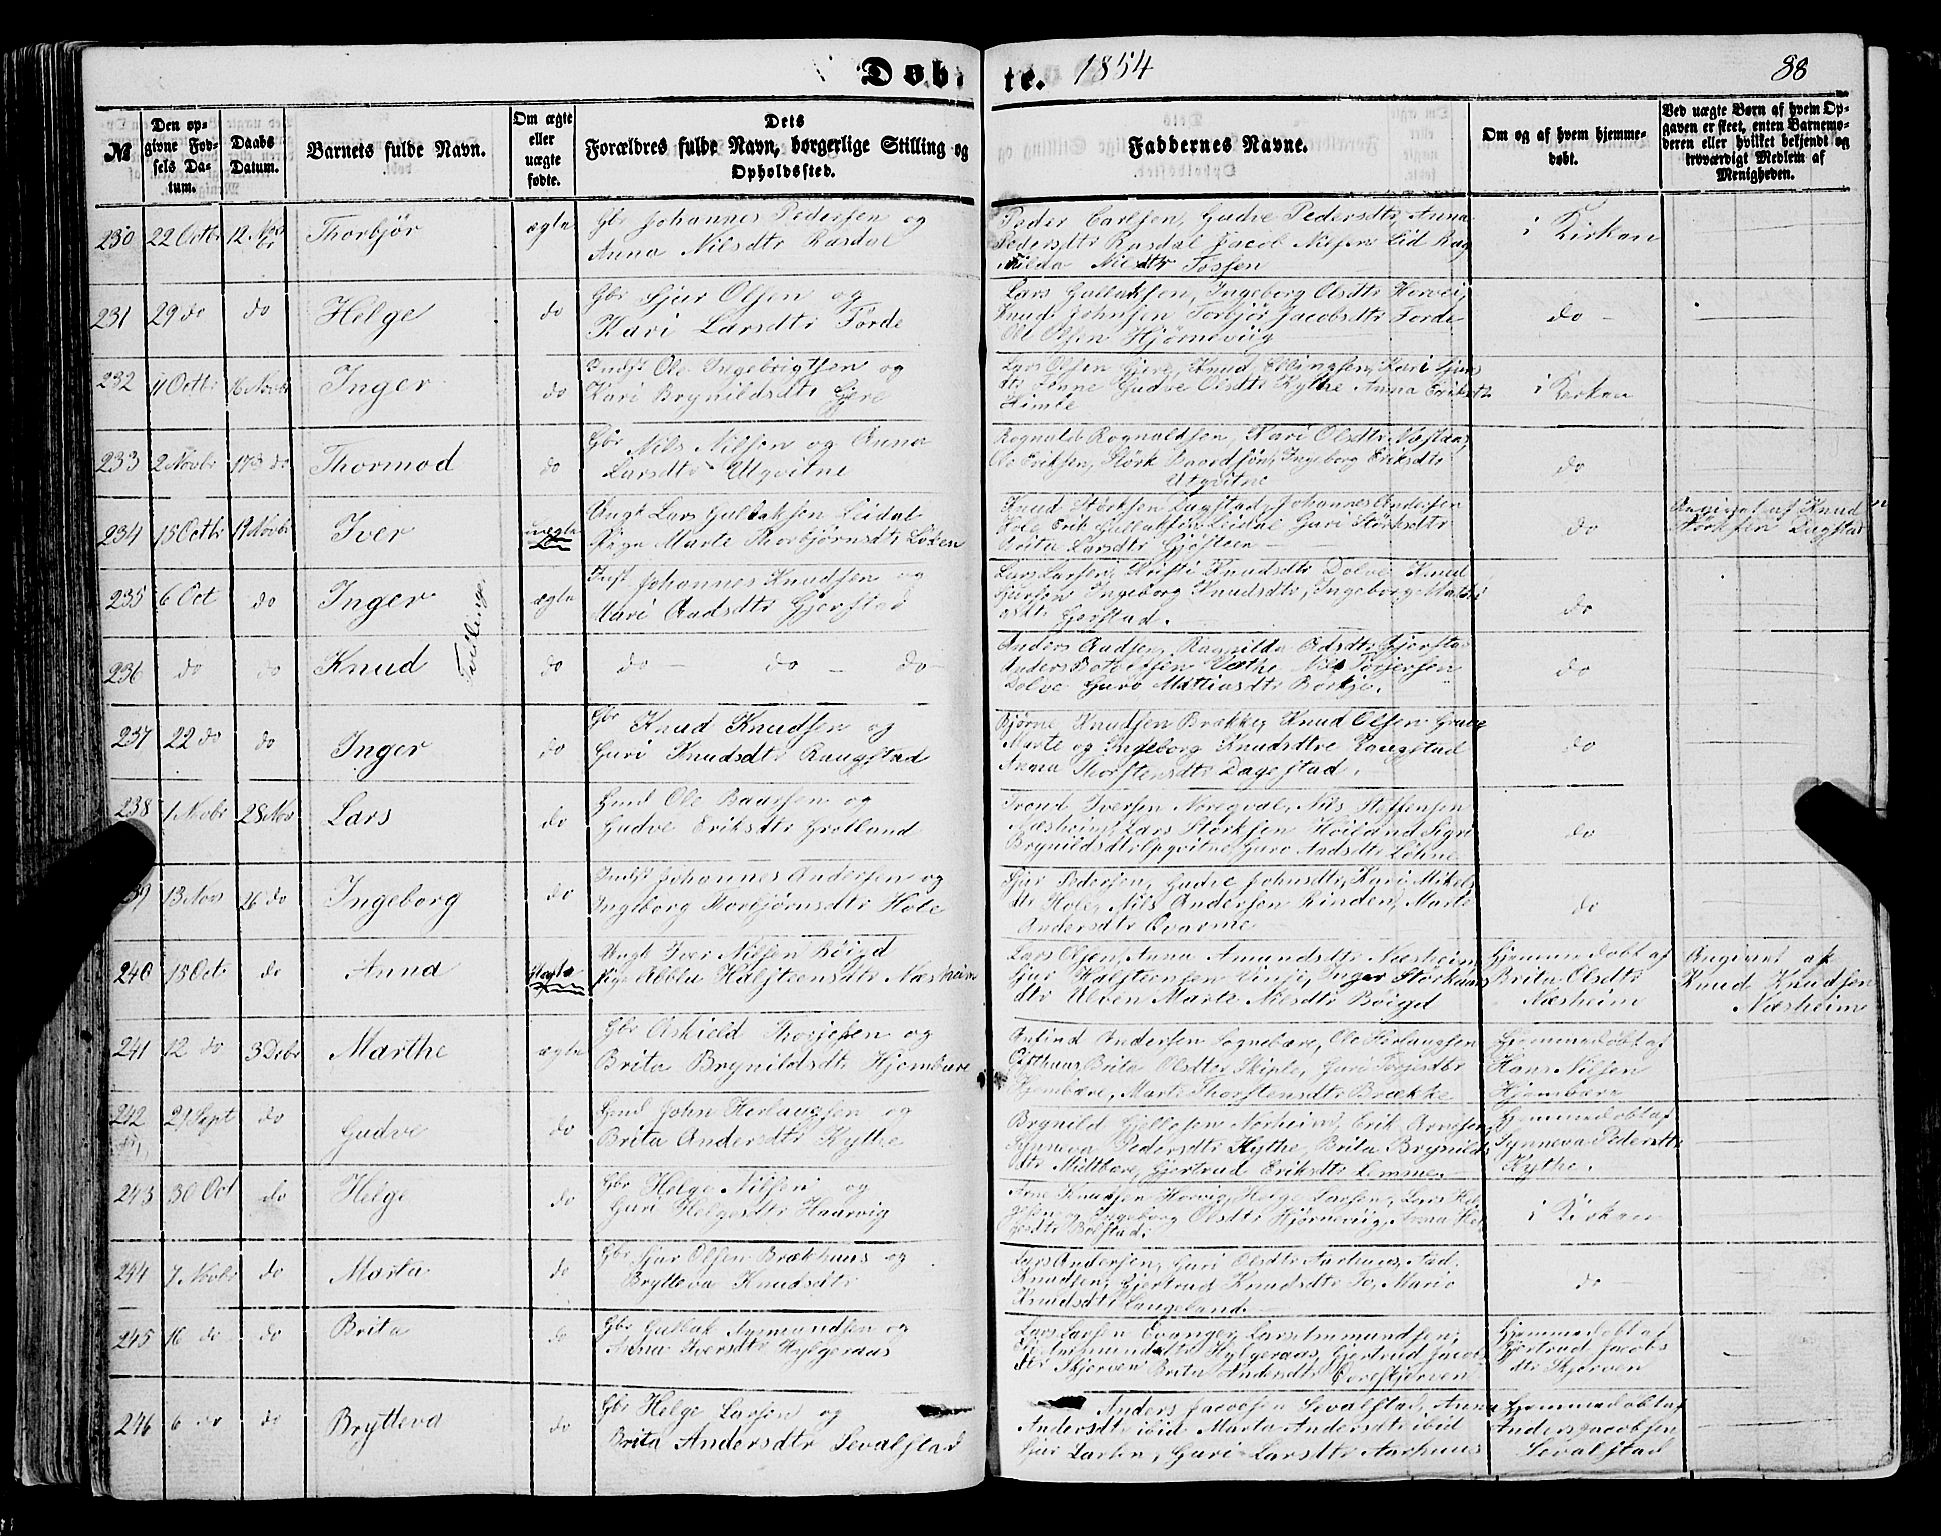 Døbte. 1854 88
№
Den opgivne Fødsels Datum.
Daabs Datum.
Barnets fulde Navn.
Om ægte eller uægte fødte.
Dets Forældres fulde Navn, borgerlige Stilling og Opholdssted.
Faddernes Navne.
Om og af hvem hjemmedøbt.
Ved uægte Børn af hvem Opgaven er skeet, enten Barnemoderen eller hvilket bekjendt og troværdigt Medlem af Menigheden.
230 22 Octbr 12 Nov Thorbjør ægte Gbr Johannes Pedersen og
Anna Nilsdtr Rasdal
Peder Carlsen, Gudve Pedersdtr, Anna
Pedersdtr Rasdal Jacob Nilsen Lid Rag
nilda Nilsdtr Fossen
i Kirken
231 29 do do Helge do Gbr Sjur Olsen og
Kari Larsdtr Førde
Lars Gullaksen, Ingeborg Olsdtr Horvei,
Knud Johnsen Torbjør Jacobsdtr Førde
Ole Olsen Hjørneviig
do
232 11 Octbr 16 Novbr Inger do Indst Ole Ingebrigtsen og
Kari Brynildsdtr Gjere
Lars Olsen Gjere, Knud Ellingsen, Kari Sjurs
dtr Lønne Gudve Olsdtr Kythe Anna Eriksdtr
Himle
i Kirken
233 2 Novbr 17 do Thormod do Gbr Nils Nilsen og Anna
Larsdtr Utqvitne
Rognald Rognaldsen, Kari Olsdtr Næstaas,
Ole Eriksen, Størk Ingeborg Eriksdtr
Utqvitne
do
234 15 Octbr 19 Novbr Iver uægte Ungk Lars Gullaksen Leidal
Pige Marte Thorbjørnsdtr Løken
Knud Størksen Dagstad, Johannes Andersen
Hole Erik Gullaksen Leidal Guri Størksdtr
Brita Larsdtr Gjøsteen
do
Angivet af Knud
Størksen Dagstad
235 6 Oct do Inger ægte Indst Johannes Knudsen og
Mari Aadsdtr Gjerstad
Lars Larsen, Kristi Knudsdtr Dolve Knud
Sjursen Ingeborg Knudsdtr, Ingeborg
Gjerstad.
do
Tvillinger
236 do do Knud do do do do
Anders Aadsen, Ragnilda Adsdtr Gjerstad
Anders Væthe Nils Torjersen
Dolve Guro Mathiasdtr Børkje.
do
237 22 do do Inger do Gbr Knud Knudsen og
Guri Knudsdtr Raugstad
Bjørne Knudsen Brække, Knud Olsen Grave
Marte og Ingeborg Knudsdtre Raugstad
Anna Thorstensdtr Dagestad.
do
238 1 Novbr 28 Nov Lars do Hmd Ole Baarsen og
Gudve Eriksdtr Grotland
Trond Iversen Norqval, Nils Steffensen
Næsheim, Lars Størksen Høiland Sigri
Brynildsdtr Opqvitne Guro Aadsdtr Lehne
do
239 13 Nov 26 do Ingeborg do Indst Johannes Andersen og
Ingeborg Thorbjørnsdtr Hole
Sjur Pedersen, Gudve Johnsdtr, Kari Mikels
dtr Hole, Nils Andersen Rinden, Marte
Andersdtr Qvarme
do
240 15 Oct do Anna uægte Ungk Iver Nilsen Bøigd
Pige Ablu Halsteensdtr Næsheim
Lars Olsen, Anna Amundsdtr Næsheim
Sjur Halsteensen Finse, Inger Størkaars
dtr Ulven Marte Nilsdtr Bøigd
Hjemmedøbt af
Brita Olsdtr
Næsheim
Angivet af
Knud Knudsen
Næsheim
241 12 do 3 Debr Marthe ægte Gbr Askield Thorjesen og
Brita Brynildsdtr Hjembære
Andersen Sognebære, Ole Herlaugsen
Gifthuus Brita Olsdtr Skiple, Guri Torjesdtr
Hjembære, Marte Thorstensdtr Brække
Hjemmedøbt af
Hans Nilsen
Hjembære
242 21 Sept do Gudve do Hmd John Herlaugsen og
Brita Andersdtr Kythe
Brynild Gjellesen Norheim, Erik Arnesen,
Synneva Pedersdtr Kythe, Brita Brynilds
dtr Midtbære, Gjertrud Eriksdtr Lemme.
Hjemmedøbt af
Synneva Pedersdtr
Kythe.
243 30 Oct do Helge do Gbr Helge Nilsen og
Guri Helgesdtr Haarvig
Arne Knudsen Horvig, Helge Larsen, Lars Hel
gesen og Ingeborg Olsdtr Hjørneviig, Anna Hel
gesdtr Bolstad.
i Kirken
244 7 Novbr do Marta do Gbr Sjur Olsen Brækhuus og
Brytteva Knudsdtr
Lars Andersen, Guri Olsdtr Aarhuus, Aad
Knudsen, Gjertrud Knudsdtr Fo, Mario
Knudsdtr Laugeland.
do
245 16 do do Brita do Gbr Gullak Ammundsen og
Anna Iversdtr Hylgeraas
Lars Larsen Evanger, Lars Ammundsen,
Ammundsdtr Hylgeraas, Gjertrud Jacobs
dtr Skjerven Brita Andersdtr Øvreskjerven
Hjemmedøbt af
Gjertrud Jacobs
dtr Skjerven
246 6 do do Brytteva do Gbr Helge Larsen og
Brita Andersdtr Sevalstad
Anders Jacobsen Sevalstad, Anna
Andersdtr ibid Marta Andersdtr ibid
Sjur Larsen, Guri Larsdtr Aarhuus
Hjemmedøbt af
Anders Jacobsen
Sevalstad